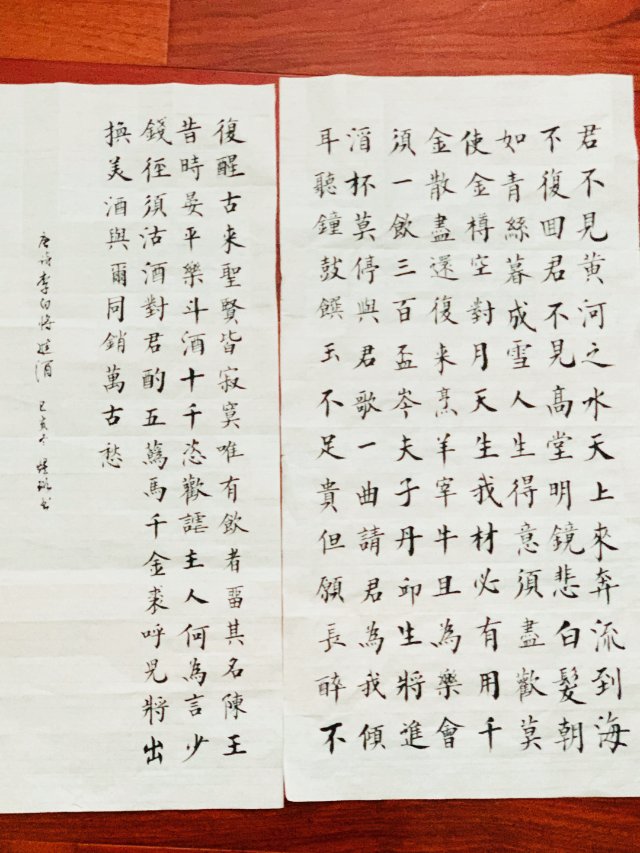 君不見黄河之水天上來奔流到海
不復囬君不見高堂明鏡悲白髮朝
如青絲暮成雪人生得意須盡歡莫
使金樽空對月天生我材必有用千
金散盡還復来烹羊宰牛且為樂會
須一飲三百盃岑夫子丹邱生將進
酒杯莫停與君歌一曲請君為我傾
耳聽鐘鼓饌玉不足貴但願長醉不
復醒古来聖賢皆寂寞唯有飲者畱其名陳王
昔時晏平樂斗酒十千恣歡謔主人何為言少
錢徑須沽酒對君酌五蘤馬千金裘呼兒將出
換美酒與爾同銷萬古愁
唐詩李白將進酒 己亥冬 书